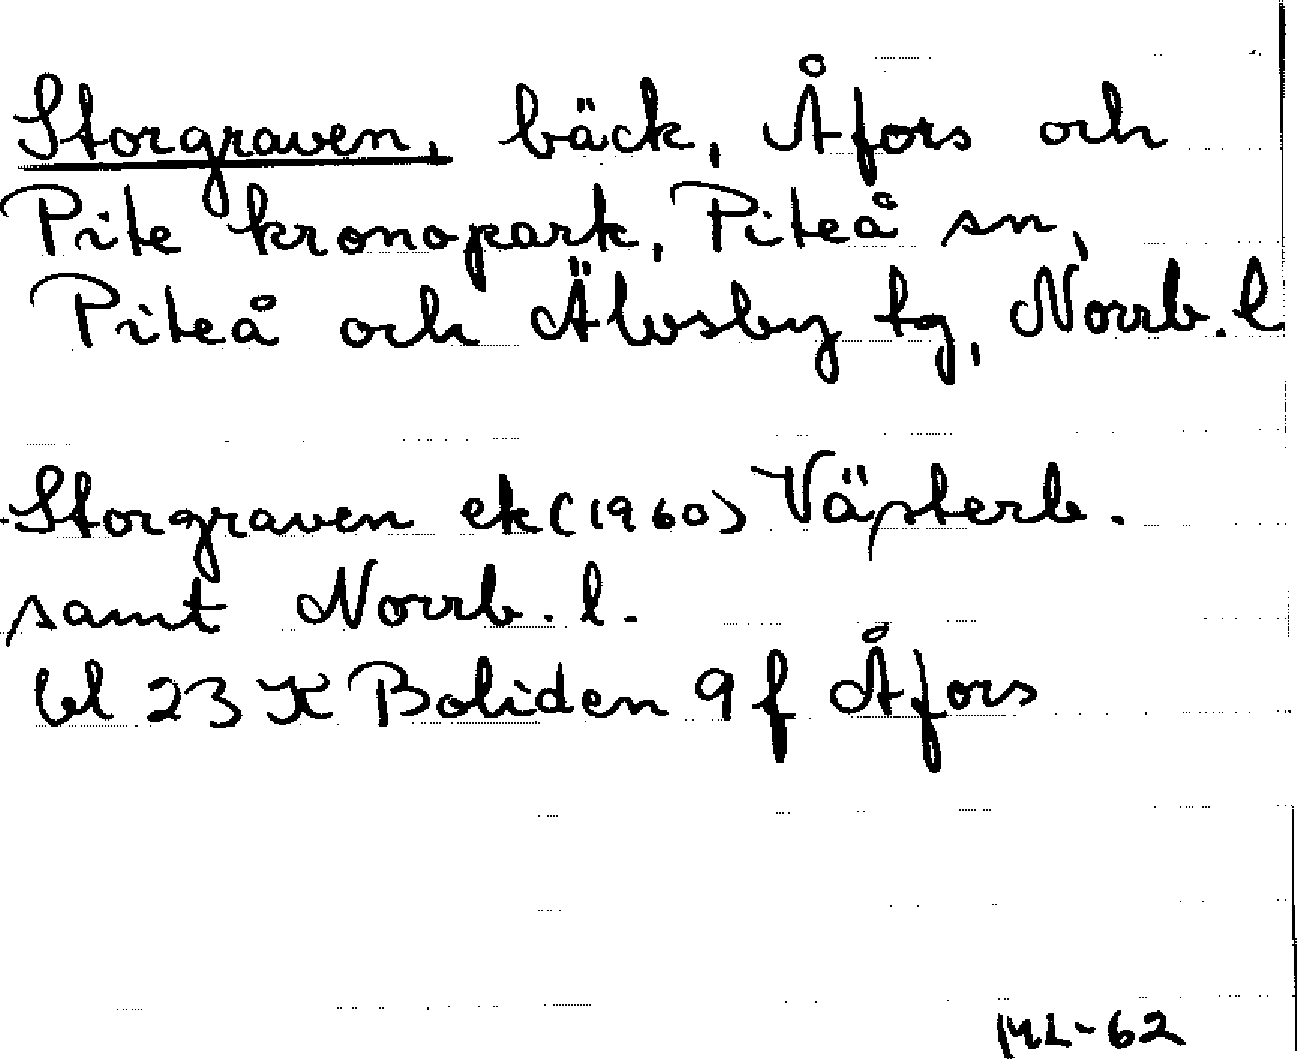 Storgraven, bäck, Åfors och
Pite kronopark, Piteå sn,
Piteå och Älvsby tg, Norrb. l
Storgraven ek (1960) Västerb.
samt Norrb. l.
bl 23 K Boliden 9 f Åfors
ML-62